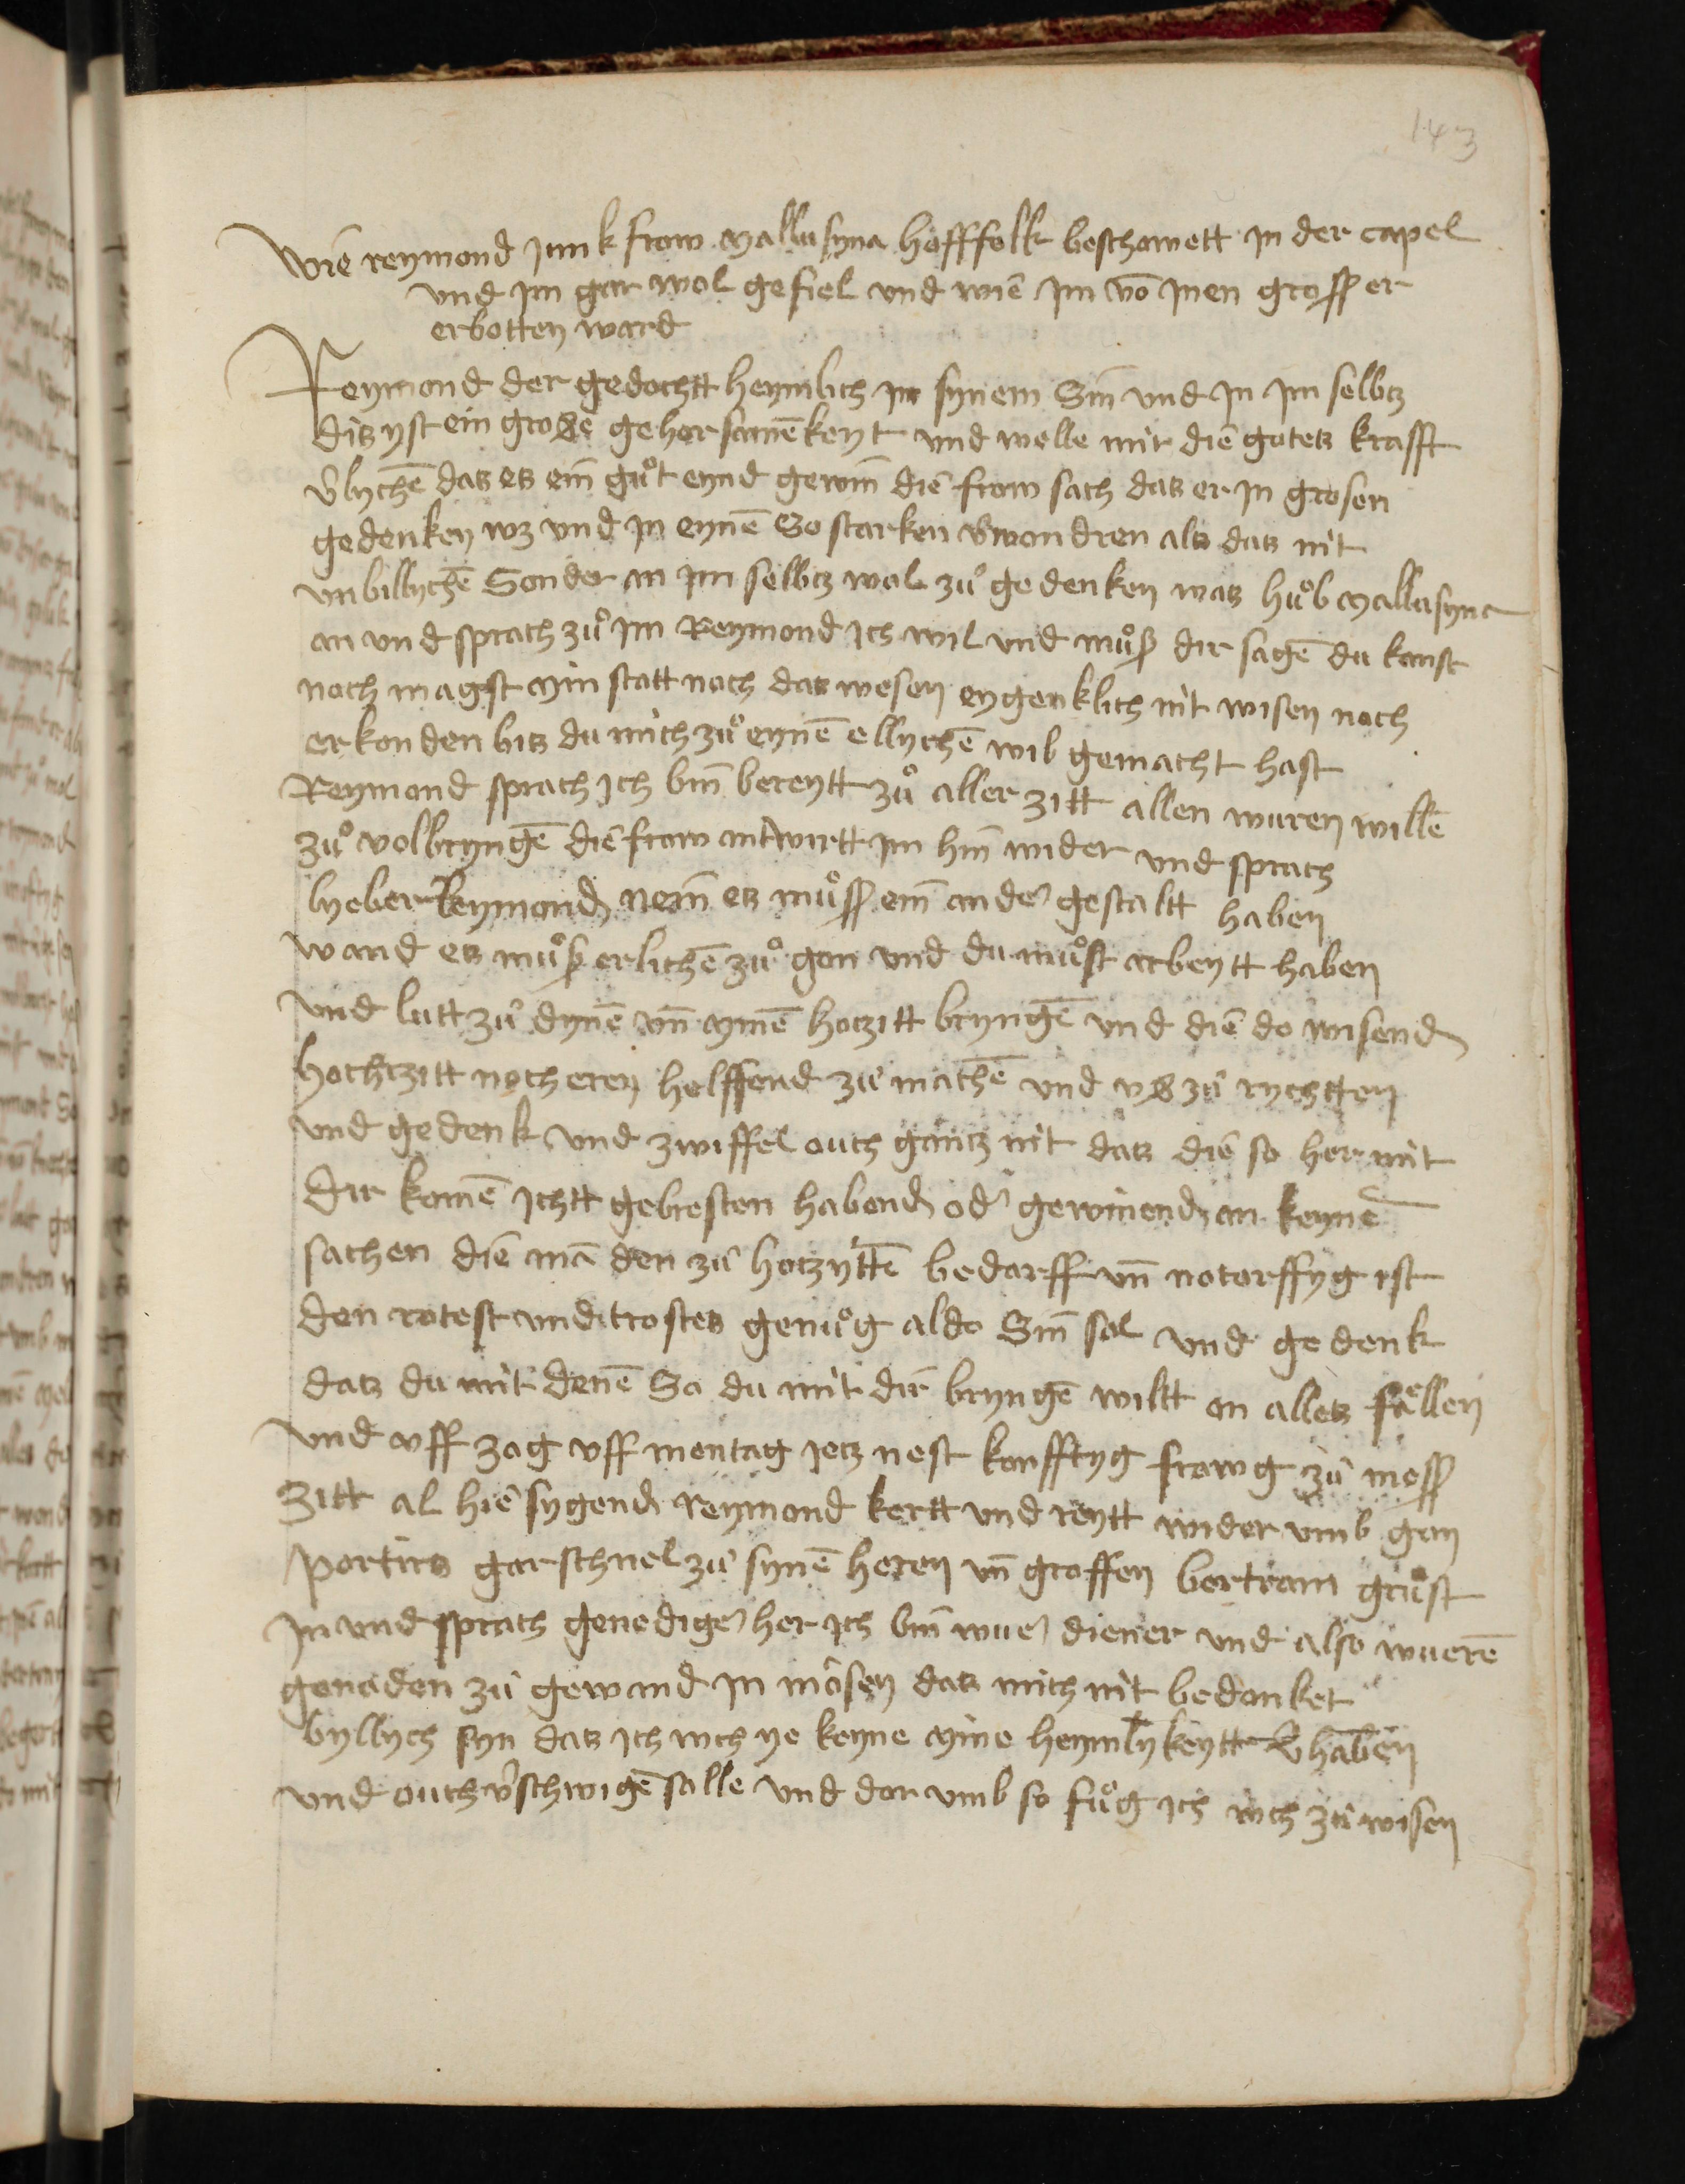 143
Wie reymond junkfrow mallusyna hofffolk beschowett in der capel
und im gar wol gefiel und wie im vō inen grosser
erbotten ward
Reymond der gedochtt heymlich in synem Sin̄ und in im selbtz
ditz yst ein grose gehorsamēkeyt und welle mir die gotets krafft
v̄lychē das es ein̄ gůt eynd gewin̄ die frow sach das er in grosen
gedenken wz und in eynē So starken v̄wondren als das nit
unbillychē Sonder an im selbtz wol zů gedenken was hůb mallusyna
an und sprach zů im Reymond ich wil und můß dir sagē du kanst
noch magst min statt noch das wesen eygenklich nit wisen noch
erkonden bis du mich zů eynē ellychē wib gemacht hast
Reymond sprach ich bin̄ bereytt zů aller zitt allen wuren willē
zů volbryngē die frow antwirtt im hin̄ wider und sprach
lyeber Reymond nein̄ es můss ein̄ ander gestaltt haben
wand es můß erlichē zů gon und du můst arbeytt haben
und lutt zů dynē un̄ mynē hotzitt bryngē und die do wisend
hochtzitt noch eren helffend zů machē und uß zů rychtten
und gedenk und zwiffel ouch gantz nit das die so her mit
dir komē ichtt gebresten habend oder gewinend an keynē
sachen die mā den zů hotzyttē bedarff un̄ notorffyg ist
den rotest und trostes genůg aldo Sin̄ sol und gedenk
das du mit denē So du mit dir bryngē wiltt on alles fællen
und uff zog uff mentag jetz nest konfftyg frowg zů mess
zitt al hie sygend reymond kertt und reytt wider umb gon
portirs gar schnel zů synē heren un̄ groffen bertram grůst
in und sprach genediger her ich bin̄ wuer diener und also wuerē
genaden zů gewand in mosen das mich nit bedanket
byllych syn das ich uch ye keyne mine heymlykeytt v̄haben
und ouch v̄schwigē solle und dorumb so fůg ich uch zů wisen